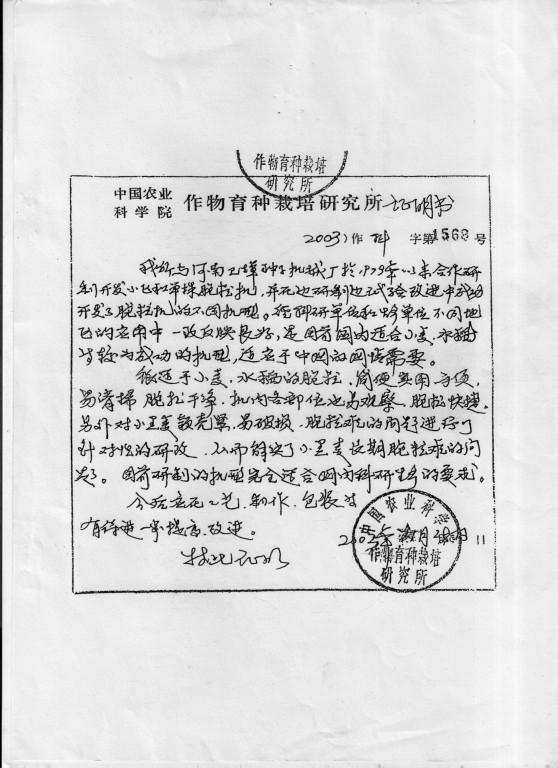 作物育种栽培
研究所
中国农业
科学院
作物育种栽培研究所证明书
2003)作 科 字第1568号
我所与河南 种子机械厂于1979年以来合作研
制开发小区和单株脱粒机,并在边研制边试验改进中成功
开发了脱粒机的不同机型。在科研单位和 单位不同地
区的应用中一致反映良好,是目前国内适合小麦、水稻
等较为成功的机型,适应于中国的国情需要。
很适于小麦、水稻的脱粒,简便实用方便,
易清扫 脱粒干净,机内各部位也易观察,脱粒快捷,
另外对小黑麦 壳 ,易破损、脱粒难的问题进行了
针对性的研改,从而解决了小黑麦长期脱粒难的问
题。目前研制的机型完全适合国内科研生产的要求。
今后应在工艺、制作、包装
有待进一步提高、改进。
特此证明
中国农业科学院
作物育种栽培
研究所